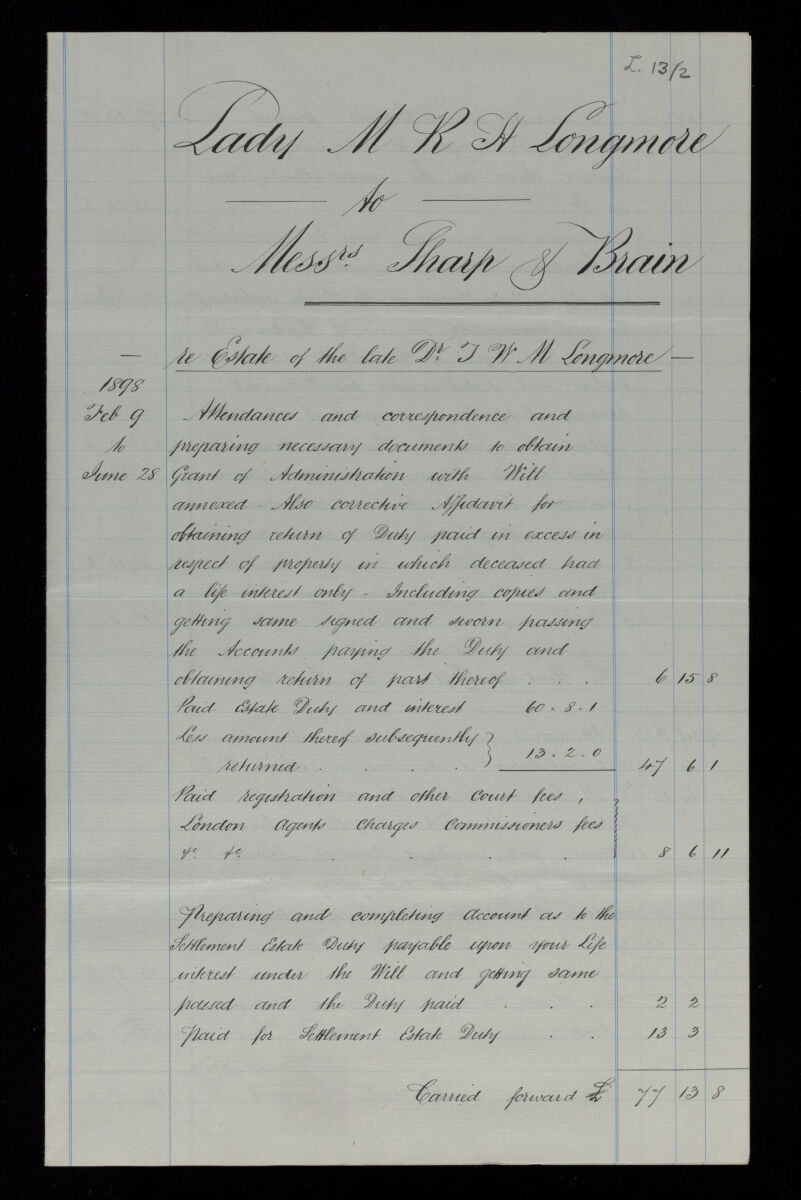 L. 13/2
Lady M K H Longmore
to
Messrs. Sharp & Brain
— re Estate of the late Dr. T W M Longmore —
1898
Feb 9 Attendances and correspondence and
to preparing necessary documents to obtain
June 28 Grant of Administration with Will
annexed - Also corrective Affidavit for
obtaining return of Duty paid in excess in
respect of property in which deceased had
a life interest only - Including copies and
getting same signed and sworn passing
the Accounts paying the Duty and
obtaining return of part thereof . . . 6 15 8
Paid Estate Duty and interest 60 - 8 - 1
Less amount thereof subsequently } 13 - 2 - 0
returned . . . . 47 6 1
Paid registration and other Court fees,
London Agents Charges Commissioners fees
&c. &c. . . . . 8 6 11
Preparing and completing Account as to the
Settlement Estate Duty payable upon your Life
interest under the Will and getting same
passed and the Duty paid . . . 2 2
Paid for Settlement Estate Duty . . 13 3
Carried forward £ 77 13 8